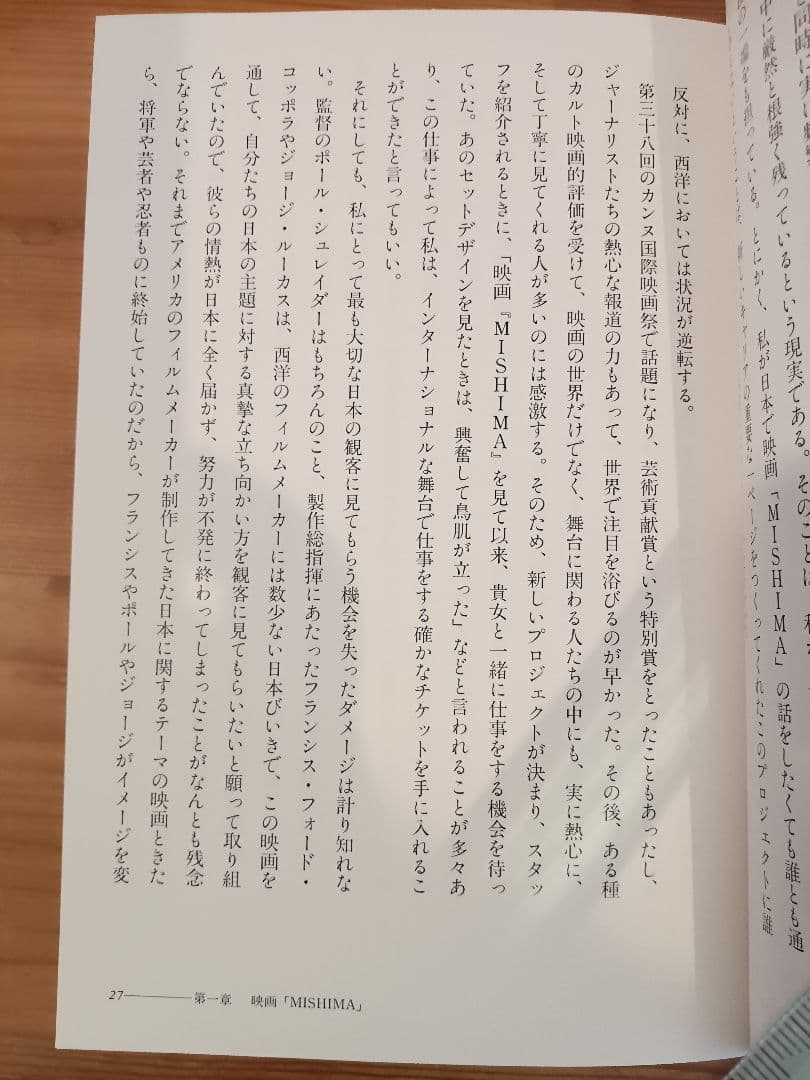 に厳然と根強く残っているという現実である。そのことは
とにかく、私が日本で映画「MISHIMA」の話をしたくても誰とも通
キャリアの重要な一ページをつくってくれたこのプロジェクトに誰
反対に、西洋においては状況が逆転する。
第三十八回のカンヌ国際映画祭で話題になり、芸術貢献賞という特別賞をとったこともあったし、
ジャーナリストたちの熱心な報道の力もあって、世界で注目を浴びるのが早かった。その後、ある種
のカルト映画的評価を受けて、映画の世界だけでなく、舞台に関わる人たちの中にも、実に熱心に、
そして丁寧に見てくれる人が多いのには感激する。そのため、新しいプロジェクトが決まり、スタッ
フを紹介されるときに、「映画『MISHIMA』を見て以来、貴女と一緒に仕事をする機会を待っ
ていた。あのセットデザインを見たときは、興奮して鳥肌が立った」などと言われることが多々あ
り、この仕事によって私は、インターナショナルな舞台で仕事をする確かなチケットを手に入れるこ
とができたと言ってもいい。
それにしても、私にとって最も大切な日本の観客に見てもらう機会を失ったダメージは計り知れな
い。監督のポール・シュレイダーはもちろんのこと、製作総指揮にあたったフランシス・フォード・
コッポラやジョージ・ルーカスは、西洋のフィルムメーカーには数少ない日本びいきで、この映画を
通して、自分たちの日本の主題に対する真摯な立ち向かい方を観客に見てもらいたいと願って取り組
んでいたので、彼らの情熱が日本に全く届かず、努力が不発に終わってしまったことがなんとも残念
でならない。それまでアメリカのフィルムメーカーが制作してきた日本に関するテーマの映画ときた
ら、将軍や芸者や忍者ものに終始していたのだから、フランシスやポールやジョージがイメージを変
27 第一章 映画「MISHIMA」